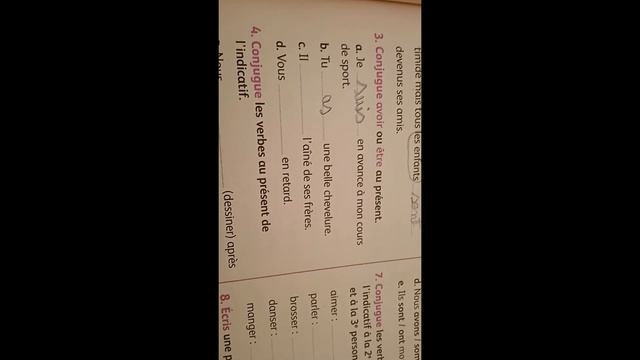 timide mais tous les enfants sont
devenus ses amis.
3. Conjugue avoir ou être au présent.
a. Je suis en avance à mon cours
de sport.
b. Tu as une belle chevelure.
c. Il l'aîné de ses frères.
d. Vous en retard.
4. Conjugue les verbes au présent de
l'indicatif.
(dessiner) après
d. Nous avons /
e. Ils sont / ont
7. Conjugue les
l'indicatif à la 2e
et à la 3e
aimer :
parler :
brosser :
danser :
manger :
8. Écris une